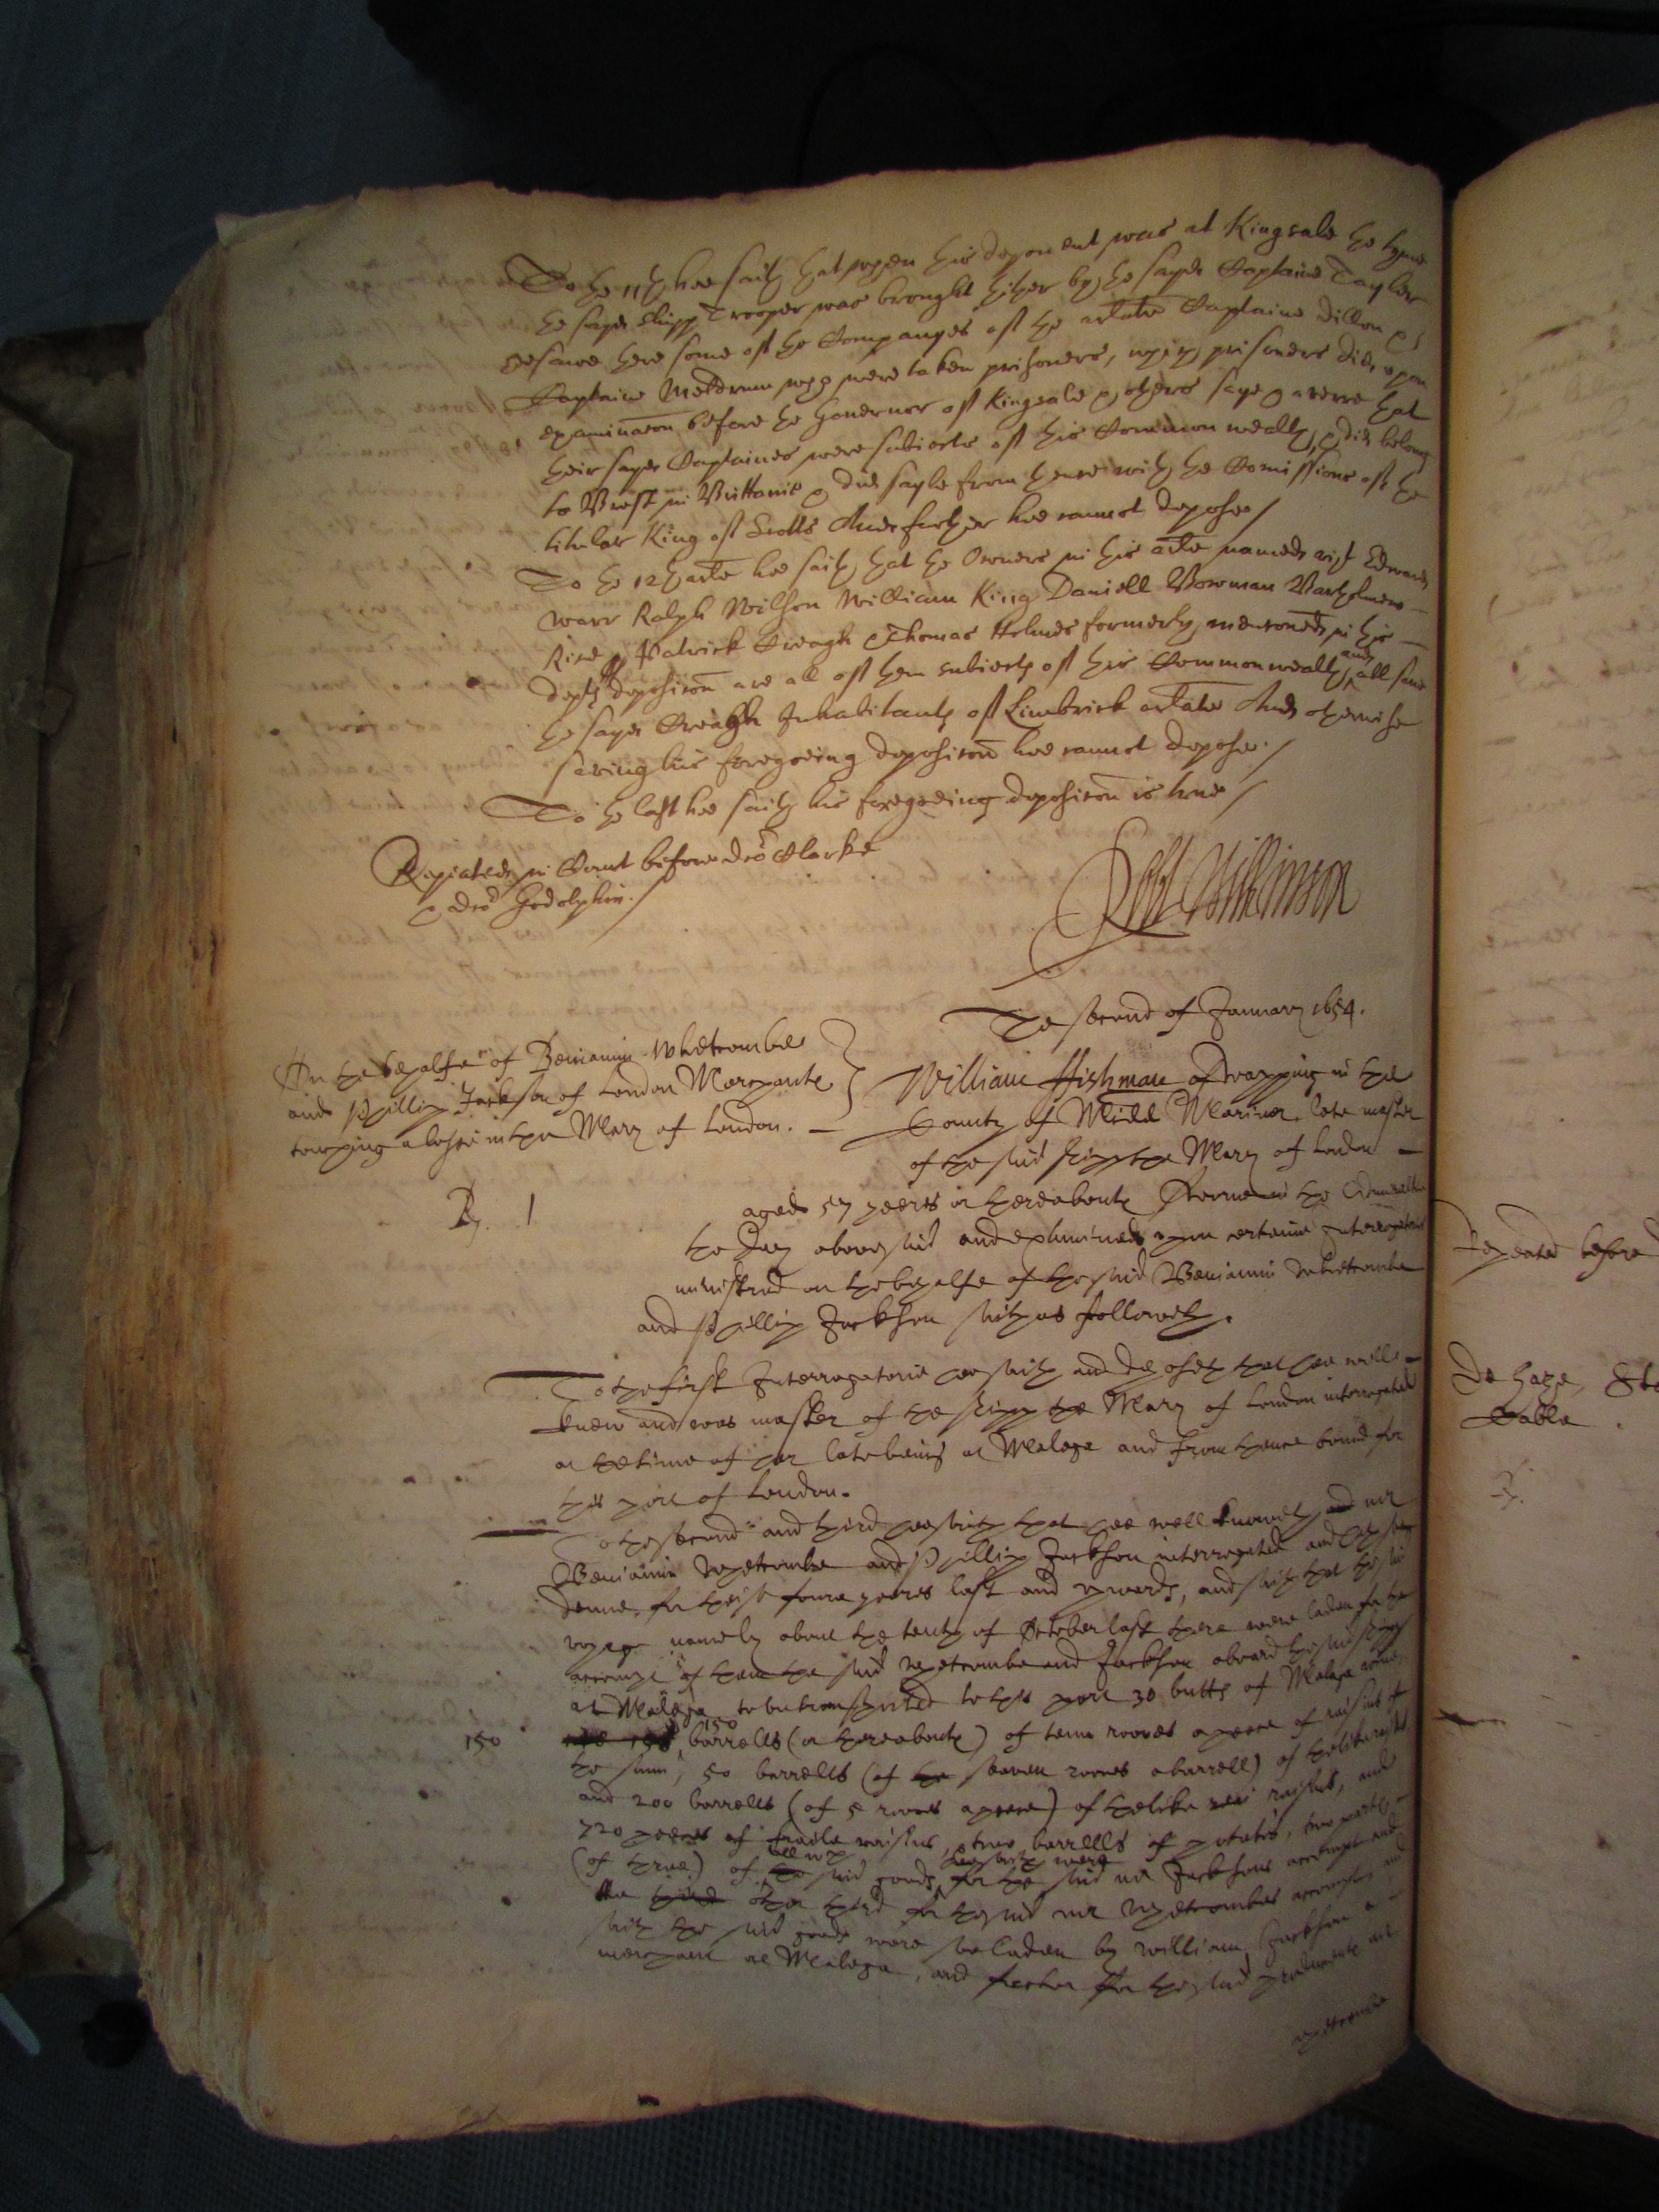 To the 11th hee saith that when this deponent was at Kingsale the tyme
the sayd shipp Trooper was brought thither by the sayd Captaine Tayler
hee sawe there some of the Companyes of the arlate Captaine Dillon &
Captaine Meldrum who were taken prisoners, which prisoners did upon
examinacon before the Governor of Kingsale & others saye & averre that
their sayd Captaines were subiects of this Common wealth, & did belong
to Brest in Brittanie & did sayle from thence with the Comissions of the
titular King of Scotts And further hee cannot depose /
To the 12th arle hee saith that the Owners in this arle named vizt Edward
Warr Ralph Wilson William King Daniell Bowman Bartholmew
Rice Patrick Creagh & Thomas Holmes formerly menconed in his
depth deposicon are all of them subiects of this Common wealth, and all save
the sayd Creagh Inhabitants of Limbrick arlate And otherwise
saving his foregoeing deposicon hee cannot depose. /
To the last hee saith his foregoeing deposicon is true /
Repeated in Court before Dor Clarke
& Dor Godolphin. /
Robt Wilkinson
The second of January 1654.
On the behalfe of Beniamin Whetcombe
and Phillip Jackson of London Merchants
touching a losse in the Mary of London.
William Fishman of Wapping in the
County of Midd Mariner late master
of the said shipp the Mary of London
Rp. 1
aged 57 yeeres or thereabouts sworne in the
the day abovesaid and examined upon certaine Interrogatories
ministred on the behalfe of the said Beniamin Whetcombe
and Phillip Jackson saith as followeth.
To the first Interrogatorie hee saith and deposeth that hee well
knew and was master of the shipp the Mary of London interrogated
at the time of her late being at Malaga and from thence bound for
this port of London.
To the second and third hee saith that hee well knoweth and mr
Beniamin Whetcombe and Phillip Jackson interrogated and hath soe
donne for theise foure yeeres last and upwards, and saith that the said
voyage namely about the tenth of October last there were laden for the
accompt of them the said Whetcombe and Jackson aboard the said shipp
at Malaga to be transported to this port 30 butts of Malaga wine,
150
150 barrells (or thereabouts) of tenn rooves a peece of raisins of
the sunn, 50 barrells (of the seaven rooves a barrell) of the like raisins
and 200 barrells (of 5 rooves a peece) of the like raisins, and
720 peeces of fraile raisins, two barrells of potatos, two parts
(of three) of all which the said goods hee saith were for the said mr Jacksons accompt and
the third other third for the said mr Whetcombes accompt, and
saith the said goods were soe laden by William Jackson a
merchant at Malaga, and factor for the said producents mr
Whetcombe
Repeated before
De haze, Sto
Table